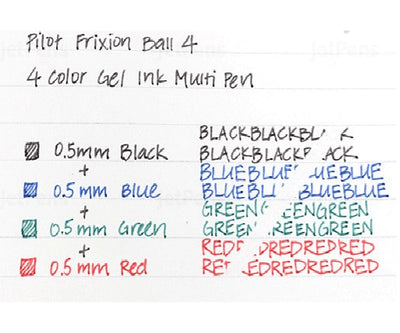 Pilot Frixion Ball 4
4 Color Gel Ink Multi Pen
0.5mm Black
+
0.5mm Blue
+
0.5mm Green
+
0.5mm Red
BLACKBLACKBL K
BLACKBLACKB ACK
BLUEBLUE UEBLUE
BLUEBLU BLUEBLUE
GREENG EENGREEN
GREEN REENGREEN
REDR DREDREDRED
RE EDREDREDRED
JetPens